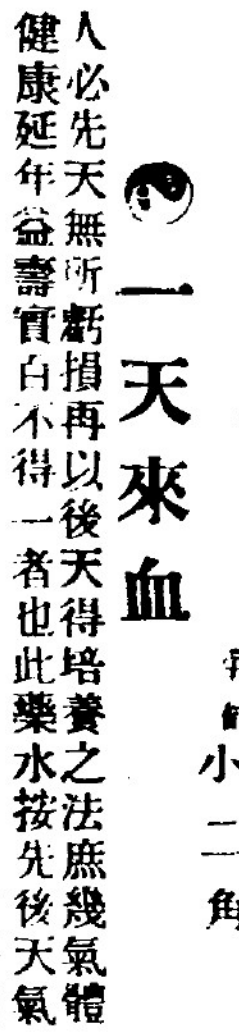 小二角
一天來血
人必先天無所虧損再以後天得培養之法庶幾氣體
健康延年益壽實百不得一者也此藥水按先後天氣